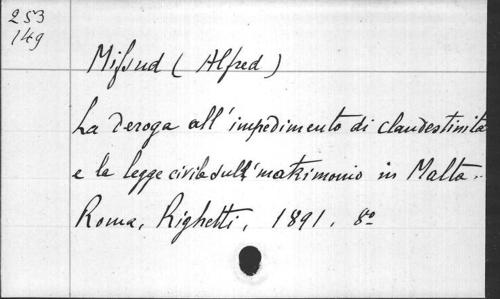 253
149
Mifsud (Alfred)
La deroga all'impedimento di clandestinità
e la legge civile sull'matrimonio in Malta.
Roma, Righetti, 1891. 8º